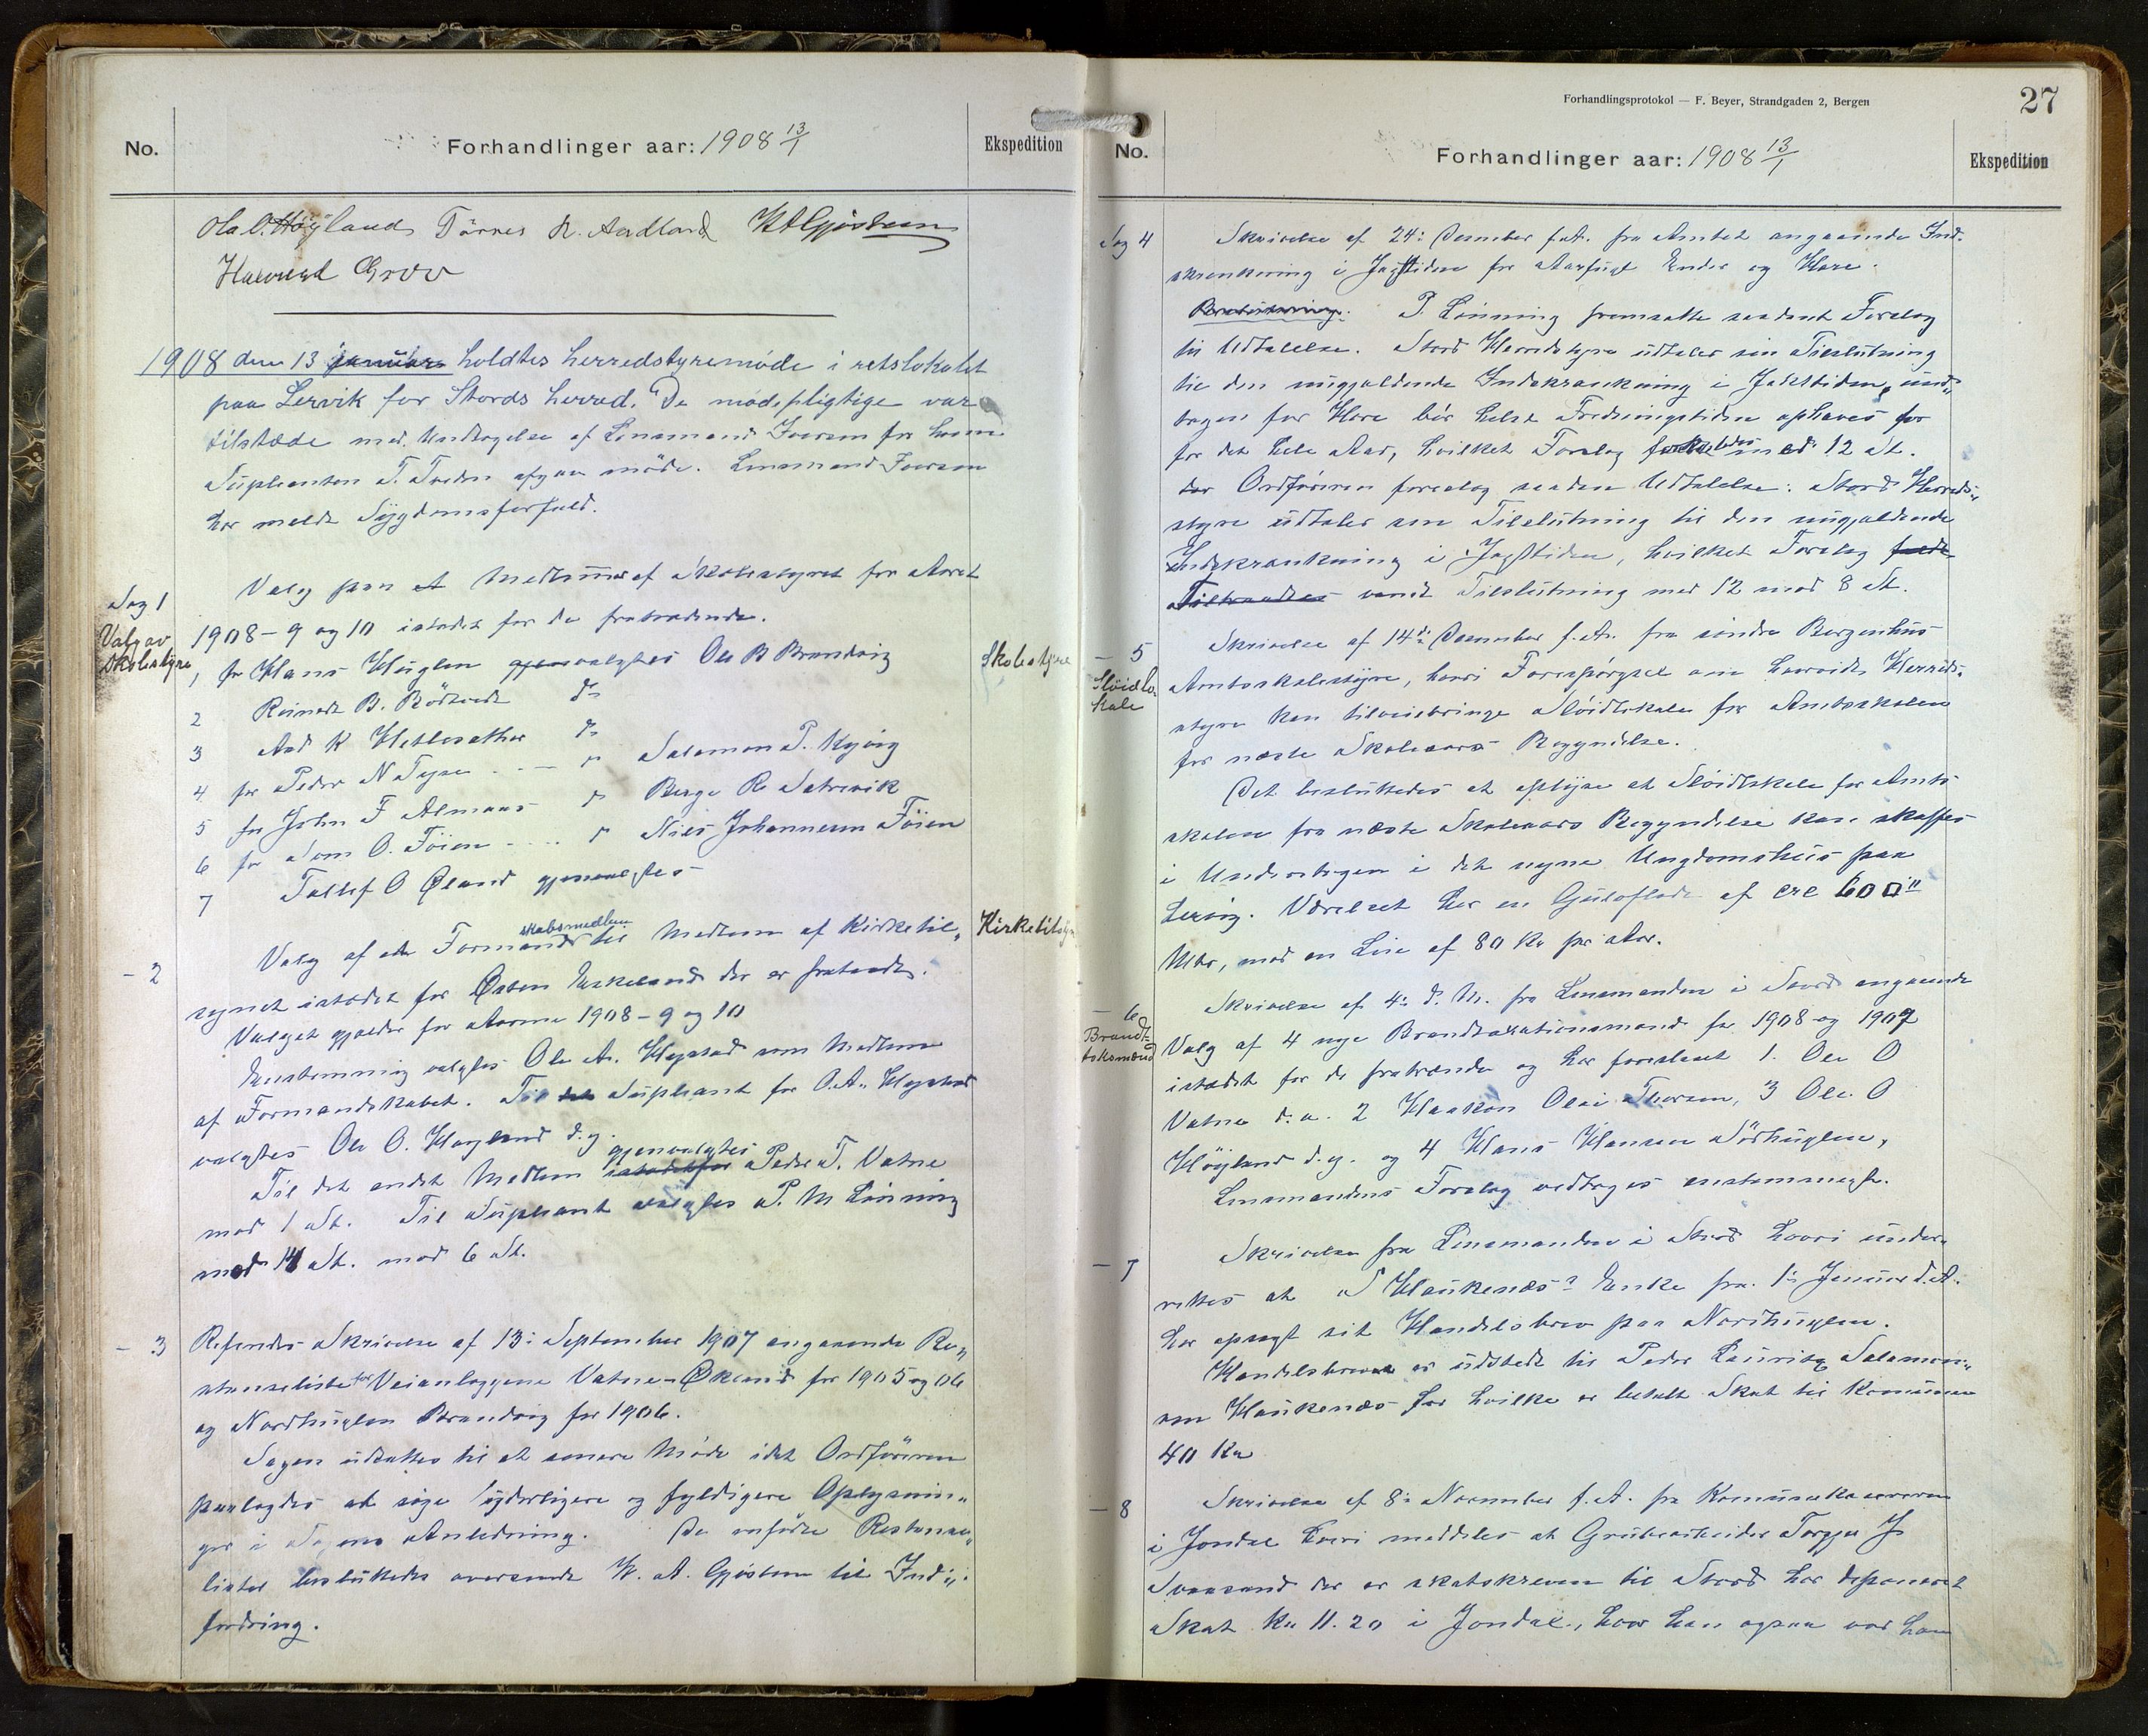 No.
Forhandlinger aar: 1908 13/1
Ekspedition
Ola O. Høyland Tørres K. Aadland K A Gjøstein
Haavard Grov
1908 den 13 januar holdtes herredstyremøde i retslokalet
paa Lervik for Stords herred. De mødepligtige var
tilstæde med Undtagelse af Lensmand Iversen for hvem
Supleanten T. Tveden afgav møde. Lensmand Iversen
har meldt Sygdomsforfald.
Sag 1
Valg av
Skolestyre
Valg paa et Medlem af Skolestyret for Aaret
1908-9 og 10 istedet for de fratrædende.
1, for Hans Huglen valgtes Ole B Brandvig
Skolestyre
2 Reinert B. Rødseth do
3 Aad K Hetlesæther do
4 for Peder N Tyse do Salomon T. Kyvig
5 for John F Almaas do Berge R Sætrevik
6 for Tom O. Föien do Nils Johannesen Föien
7 Tollef O Øland gjenvalgtes
- 2
Valg af et Formandskabsmedlem til Medlem af Kirketil-
Kirketilsyn
synet istædet for Østen Eskeland der er fratraadt.
Valget gjælder for Aarene 1908-9 og 10
Enstemmig valgtes Ole A. Hystad som Medlem
af Formandskabet. Til Supleant for O. A. Hystad
valgtes Ole O. Høyland d.y.
Til det andet Medlem gjenvalgtes Peder T. Vatne
mod 1 St. Til Supleant valgtes P. M Lönning
med 14 St. mod 6 St.
- 3
Refereredes Skrivelse af 13: September 1907 angaaende Re-
stanseliste for Veianlæggene Vatne-Økland for 1905 og 06
og Nordhuglen Brandvig for 1906.
Sagen udsattes til et senere Møde idet Ordføreren
paalagdes at søge yderligere og fyldigere Oplysnin-
ger i Sagens Anledning. De anførte Restanse-
lister besluttedes oversendt K. A. Gjøstein til Ind-
fordring.
Forhandlingsprotokol — F. Beyer, Strandgaden 2, Bergen
27
No.
Forhandlinger aar: 1908 13/1
Ekspedition
Sag 4
Skrivelse af 24: December f.A. fra Amtet angaaende Ind-
skrænkning i Jagttiden for Aarfugl Ender og Hare.
P. Lönning fremsatte saadant Forslag
til Udtalelse. Stord Herredstyre udtaler sin Tilslutning
til den nugjældende Indskrænkning i Jagttiden, und-
tagen for Hare bör helst Fredningstiden ophæves for
for det hele Aar, hvilket Forslag forkastedes med 12 St.
Ordføreren foreslog saadan Udtalelse: Stord Herreds-
styre udtaler sin Tilslutning til den nugjældende
Indskrænkning i Jagttiden, hvilket Forslag
vandt Tilslutning med 12 mod 8 St.
- 5
Sløidlo-
kale
Skrivelse af 14de December f.A. fra söndre Bergenhus
Amtsskolestyre, hvori Forespørgsel om hvorvidt Herreds-
styre kan tilveiebringe Slöidlokale for Amtsskolen
for næste Skoleaars Begyndelse.
Det besluttedes at oplyse at Slöidlokale for Amts-
skolen fra næste Skoleaars Begyndelse kan skaffes
i Underetagen i det nyne Ungdomshus paa
Lervig. Værelset har en Gulvflade af ca 60 □
Mtr, med en Leie af 80 Kr pr Aar.
- 6
Brandt-
takstmænd
Skrivelse af 4: d. M. fra Lensmanden i Stord angaaende
Valg af 4 nye Brandtaxationsmænd for 1908 og 1909
istædet for de fratrædende og har foreslaaet 1. Ole O
Vatne d.æ. 2 Haakon Olai Thorsen, 3 Ole O
Höyland d.y. og 4 Hans Hansen Sörhuglen,
Lensmandens Forslag vedtages enstemmigt.
- 7
Skrivelse fra Lensmanden i Stord hvori under-
rettes at S Haukenæs's Enke fra 1: Januar d.A.
har opsagt sit Handelsbrev paa Nordhuglen.
Handelsbrevet er udstedt til Peder Lauritz Salamon-
sen Haukenæs for hvilke er betalt Skat til Kommunen
40 Kr
- 8
Skrivelse af 8: November f.A. fra Kommunekassereren
i Jondal hvori meddeles at Grubearbeider Torgjer J
Svaasand der er skatskreven til Stord har deponeret
Skat Kr 11.20 i Jondal, hvor han ogsaa var ham